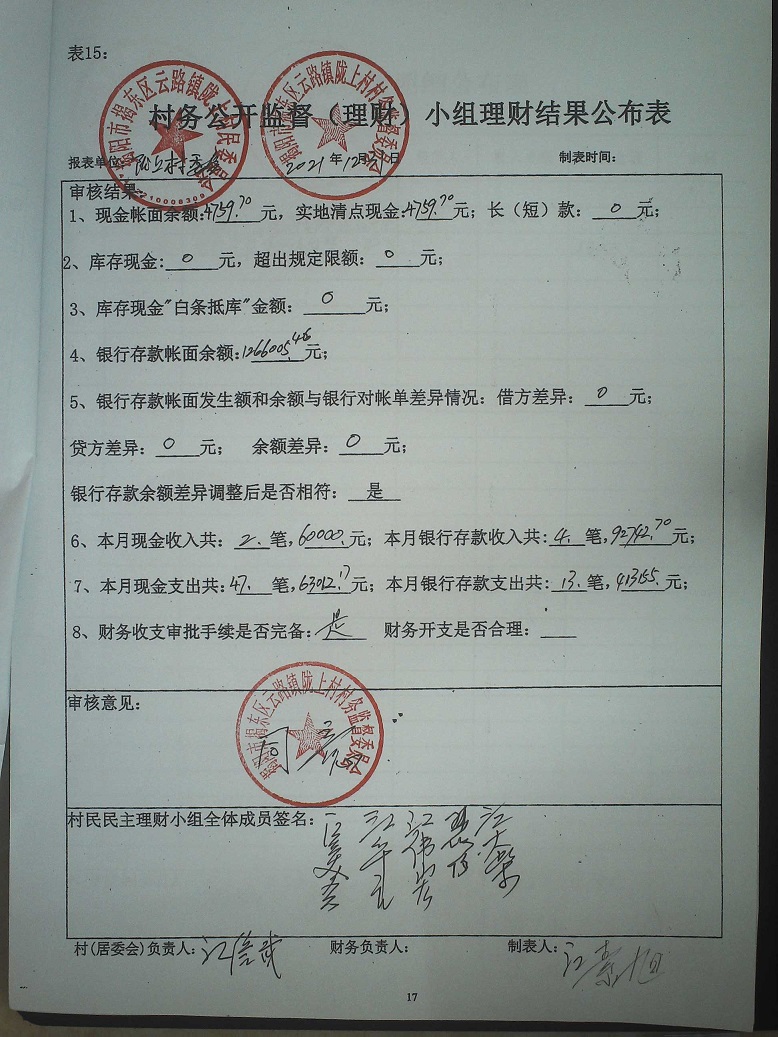 表15：
村务公开监督（理财）小组理财结果公布表
揭阳市揭东区云路镇陇上村村民委员会
揭阳市揭东区云路镇陇上村村务监督委员会
报表单位： 陇上村委会 2021年12月 日 制表时间：
审核结果：
1、现金帐面余额：4759.70元，实地清点现金：4759.70元；长（短）款：0元；
2、库存现金：0元，超出规定限额：0元；
3、库存现金"白条抵库"金额：0元；
4、银行存款帐面余额：1266005.46元；
5、银行存款帐面发生额和余额与银行对帐单差异情况：借方差异：0元；
贷方差异：0元； 余额差异：0元；
银行存款余额差异调整后是否相符：是
6、本月现金收入共：2.笔，60000.元；本月银行存款收入共：4.笔，92742.70元；
7、本月现金支出共：47.笔，63012.17元；本月银行存款支出共：13.笔，413155.元；
8、财务收支审批手续是否完备：是 财务开支是否合理：
审核意见：
同意
揭阳市揭东区云路镇陇上村村务监督委员会
村民民主理财小组全体成员签名：
村(居委会)负责人： 财务负责人： 制表人：
17